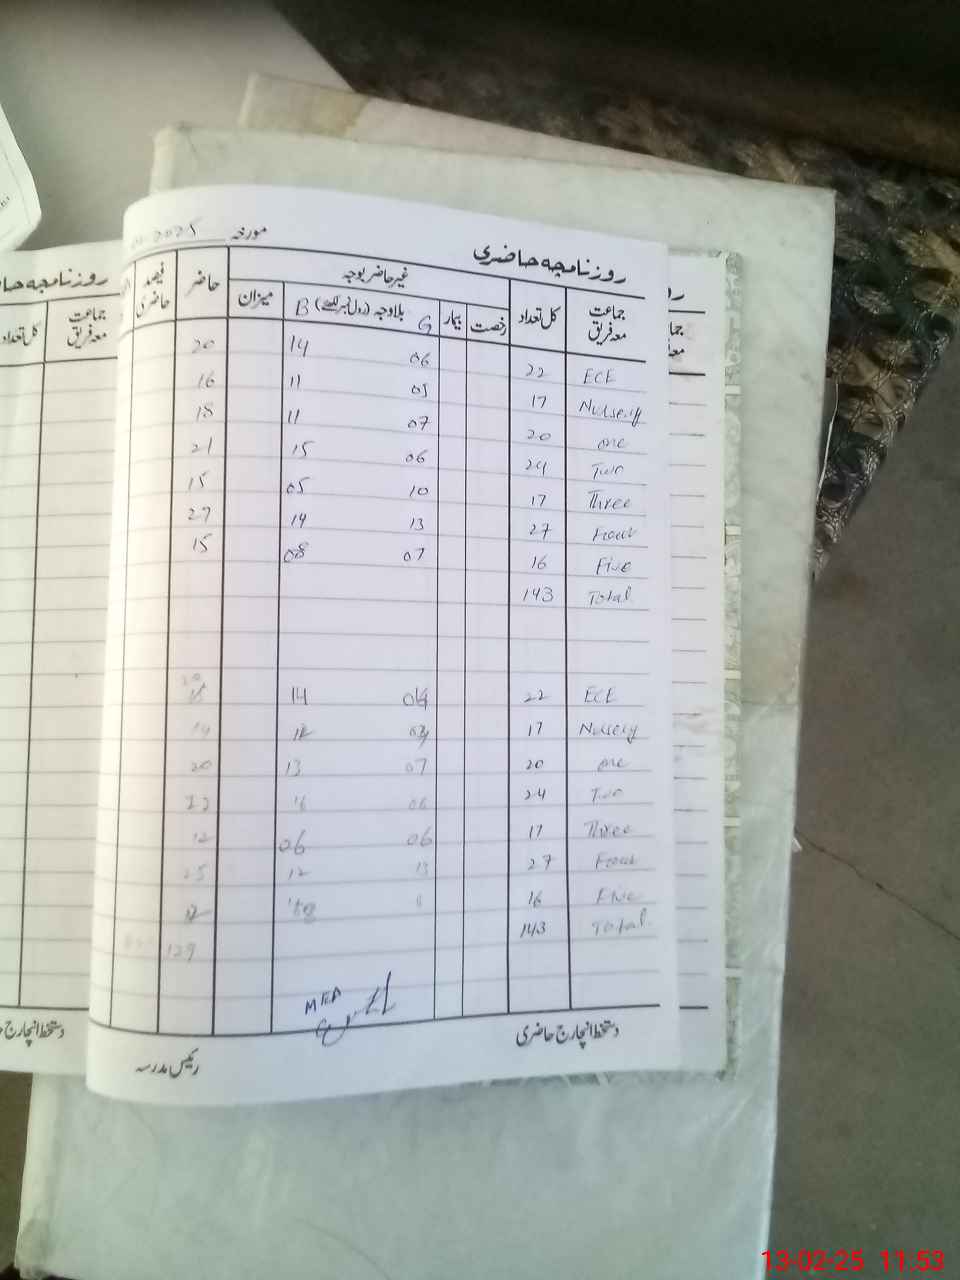 روزنامچہ حاضری
مورخہ 2025
جماعت معہ فریق کل تعداد غیر حاضر بوجہ حاضر فیصد حاضری
رخصت بیمار بلاوجہ (رول نمبر لکھئے) میزان
G B
ECE 22 06 14 20
Nursery 17 05 11 16
one 20 07 11 18
Two 24 06 15 21
Three 17 10 05 15
Four 27 13 14 27
Five 16 07 08 15
Total 143
ECE 22 14
Nursery 17
one 20 07 13 20
Two 24 06
Three 17 06 06 12
Four 27 13 12 25
Five 16
Total 143
129
MEA
دستخط انچارج حاضری
رئیس مدرسہ
روزنامچہ حا
جماعت معہ فریق
کل تعداد
دستخط انچارج
13-02-25 11:53